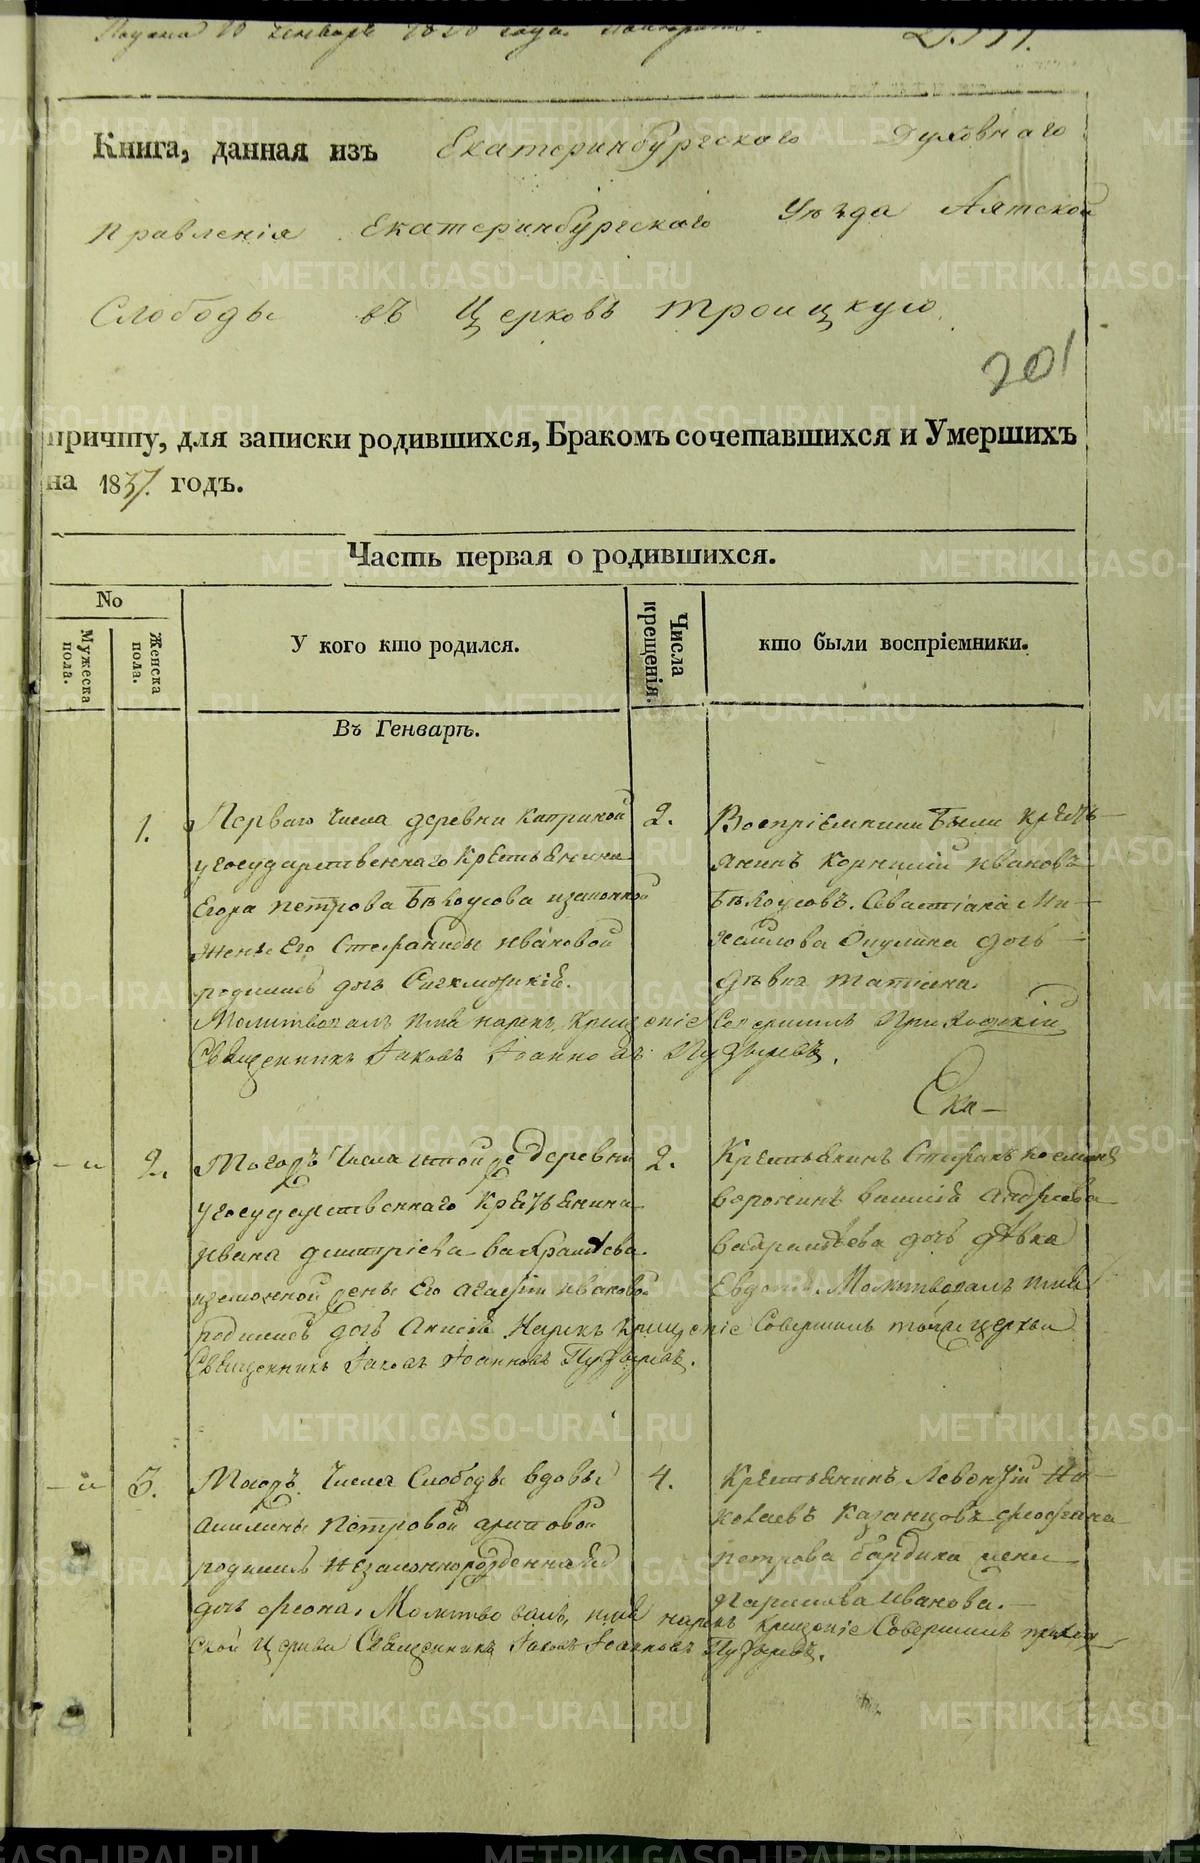 Книга, данная изъ Екатеринбургскаго Духовнаго
Правленія Екатеринбургскаго Уѣзда Аятской
Слободы въ Церковь Троицкую
201
причту, для записки родившихся, Бракомъ сочетавшихся и Умершихъ
на 1837. годъ.
Часть первая о родившихся.
No
Мужеска пола.
Женска пола.
У кого кто родился.
Числа крещенія.
кто были воспріемники.
Въ Генварѣ.
1.
Перваго числа деревни
у государственнаго Крестьянина
Егора Петрова Бѣлоусова изаконной
жены Его Стефаниды Ивановой
родилась дочь
Молитвовалъ имя нарекъ, Крещеніе Совершилъ Приходскій
Священникъ Іаковъ Іоанновъ Пузыревъ.
2.
Воспріемники были Крестъ-
янинъ Корнилій Ивановъ
Бѣлоусовъ. Севастіана Ми-
хайлова дочь
дѣвка Татіана.
Ека-
2.
Тогожъ числа тойже деревни
у государственнаго Крестьянина
Ивана Димитріева
изаконной жены Его Агафіи Ивановой
родилась дочь Анисія Нарекъ Крещеніе Совершилъ тояже церкви
Священникъ Іаковъ Іоанновъ Пузыревъ.
2.
Крестьянинъ Стефанъ Косминъ
Воронинъ Андреева
дочь дѣвка
Евдокія. Молитвовалъ имя
3.
Тогожъ числа Слободы вдовы
Акилины Петровой
родилась незаконнорожденная
дочь Феона. Молитвовалъ, имя нарекъ Крещеніе Совершилъ приход-
ской Церкви Священникъ Іаковъ Іоанновъ Пузыревъ.
4.
Крестьянинъ Леонтій Ни-
колаевъ Казанцовъ Феофана
Петрова жена
Иванова.
METRIKI.GASO-URAL.RU